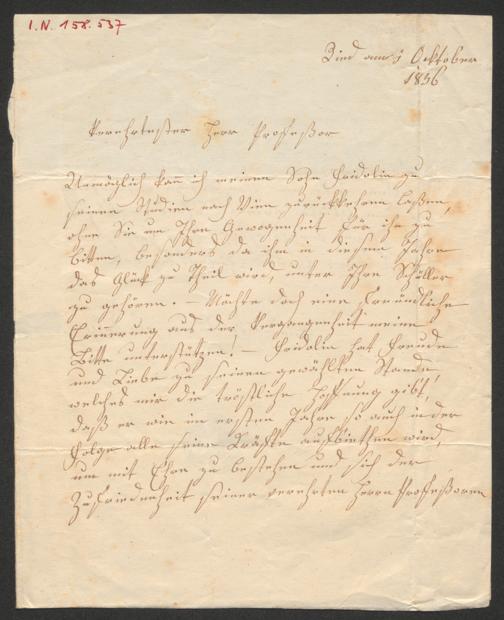 I.N. 158.537
Ried am 1 Oktober
1856
Verehrtester Herr Profeßor
Unmöglich kann ich meinen Sohn Fridolin zu
seinen Studien nach Wien zurückkehren laßen,
ohne Sie um Ihre Gewogenheit für ihn zu
bitten, besonders da ihm in diesem Jahre
das Glück zu Theil wird, unter Ihre Schüller
zu gehören. – Möchte doch eine freundliche
Erinnerung aus der Vergangenheit meine
Bitte unterstützen! – Fridolin hat Freude
und Liebe zu seinem gewählten Stande,
welches mir die tröstliche Hoffnung gibt,
daß er wie im ersten Jahre so auch in der
Folge alle seine Kräfte aufbiethen wird,
um mit Ehre zu bestehen und sich der
Zufriedenheit seiner verehrten Herrn Profeßoren